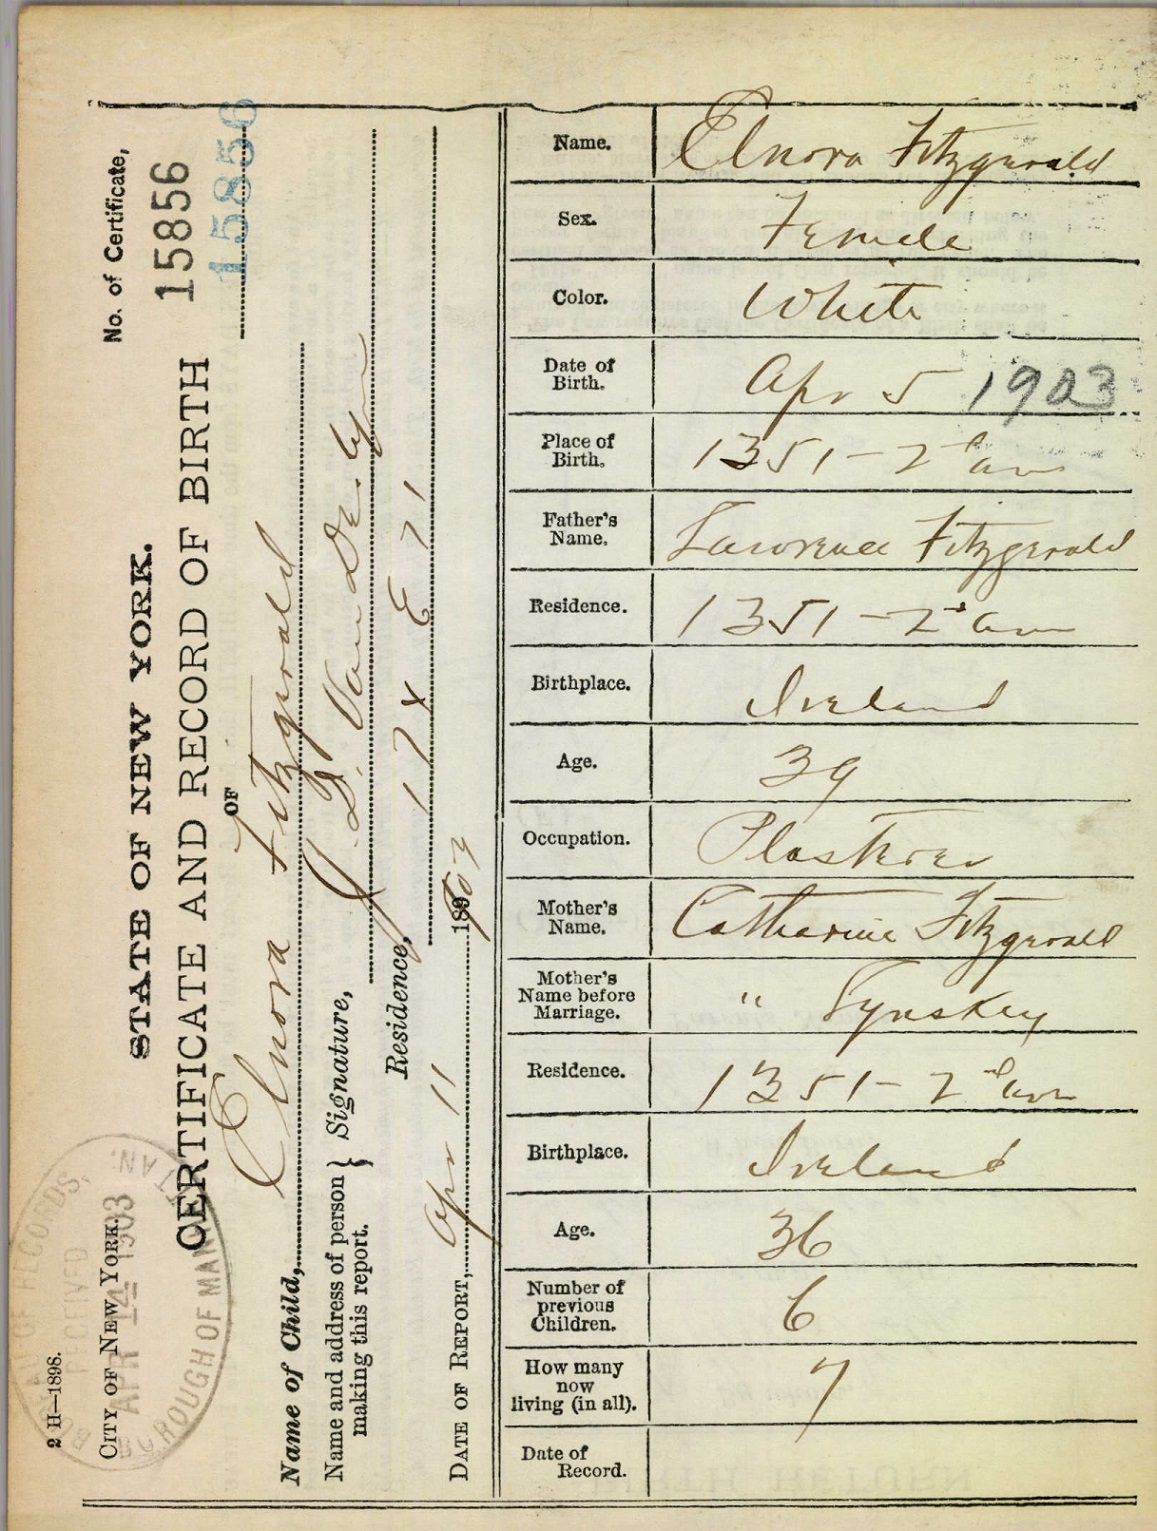 2 H—1898.
CITY OF NEW YORK.
STATE OF NEW YORK.
No. of Certificate,
15856
15856
CERTIFICATE AND RECORD OF BIRTH
OF
Name of Child, Elnora Fitzgerald
Name and address of person making this report. } Signature, J. D. Van Der
Residence, 172 E 71
DATE OF REPORT, Apr 11 1903
BUREAU OF RECORDS,
RECEIVED
APR 14 1903
BOROUGH OF MANHATTAN.
Name. Elnora Fitzgerald
Sex. Female
Color. White
Date of Birth. Apr 5 1903
Place of Birth. 1351 - 2d Ave
Father's Name. Lawrence Fitzgerald
Residence. 1351 - 2d Ave
Birthplace. Ireland
Age. 39
Occupation. Plasterer
Mother's Name. Catharine Fitzgerald
Mother's Name before Marriage. " Lynskey
Residence. 1351 - 2d Ave
Birthplace. Ireland
Age. 36
Number of previous Children. 6
How many now living (in all). 7
Date of Record.